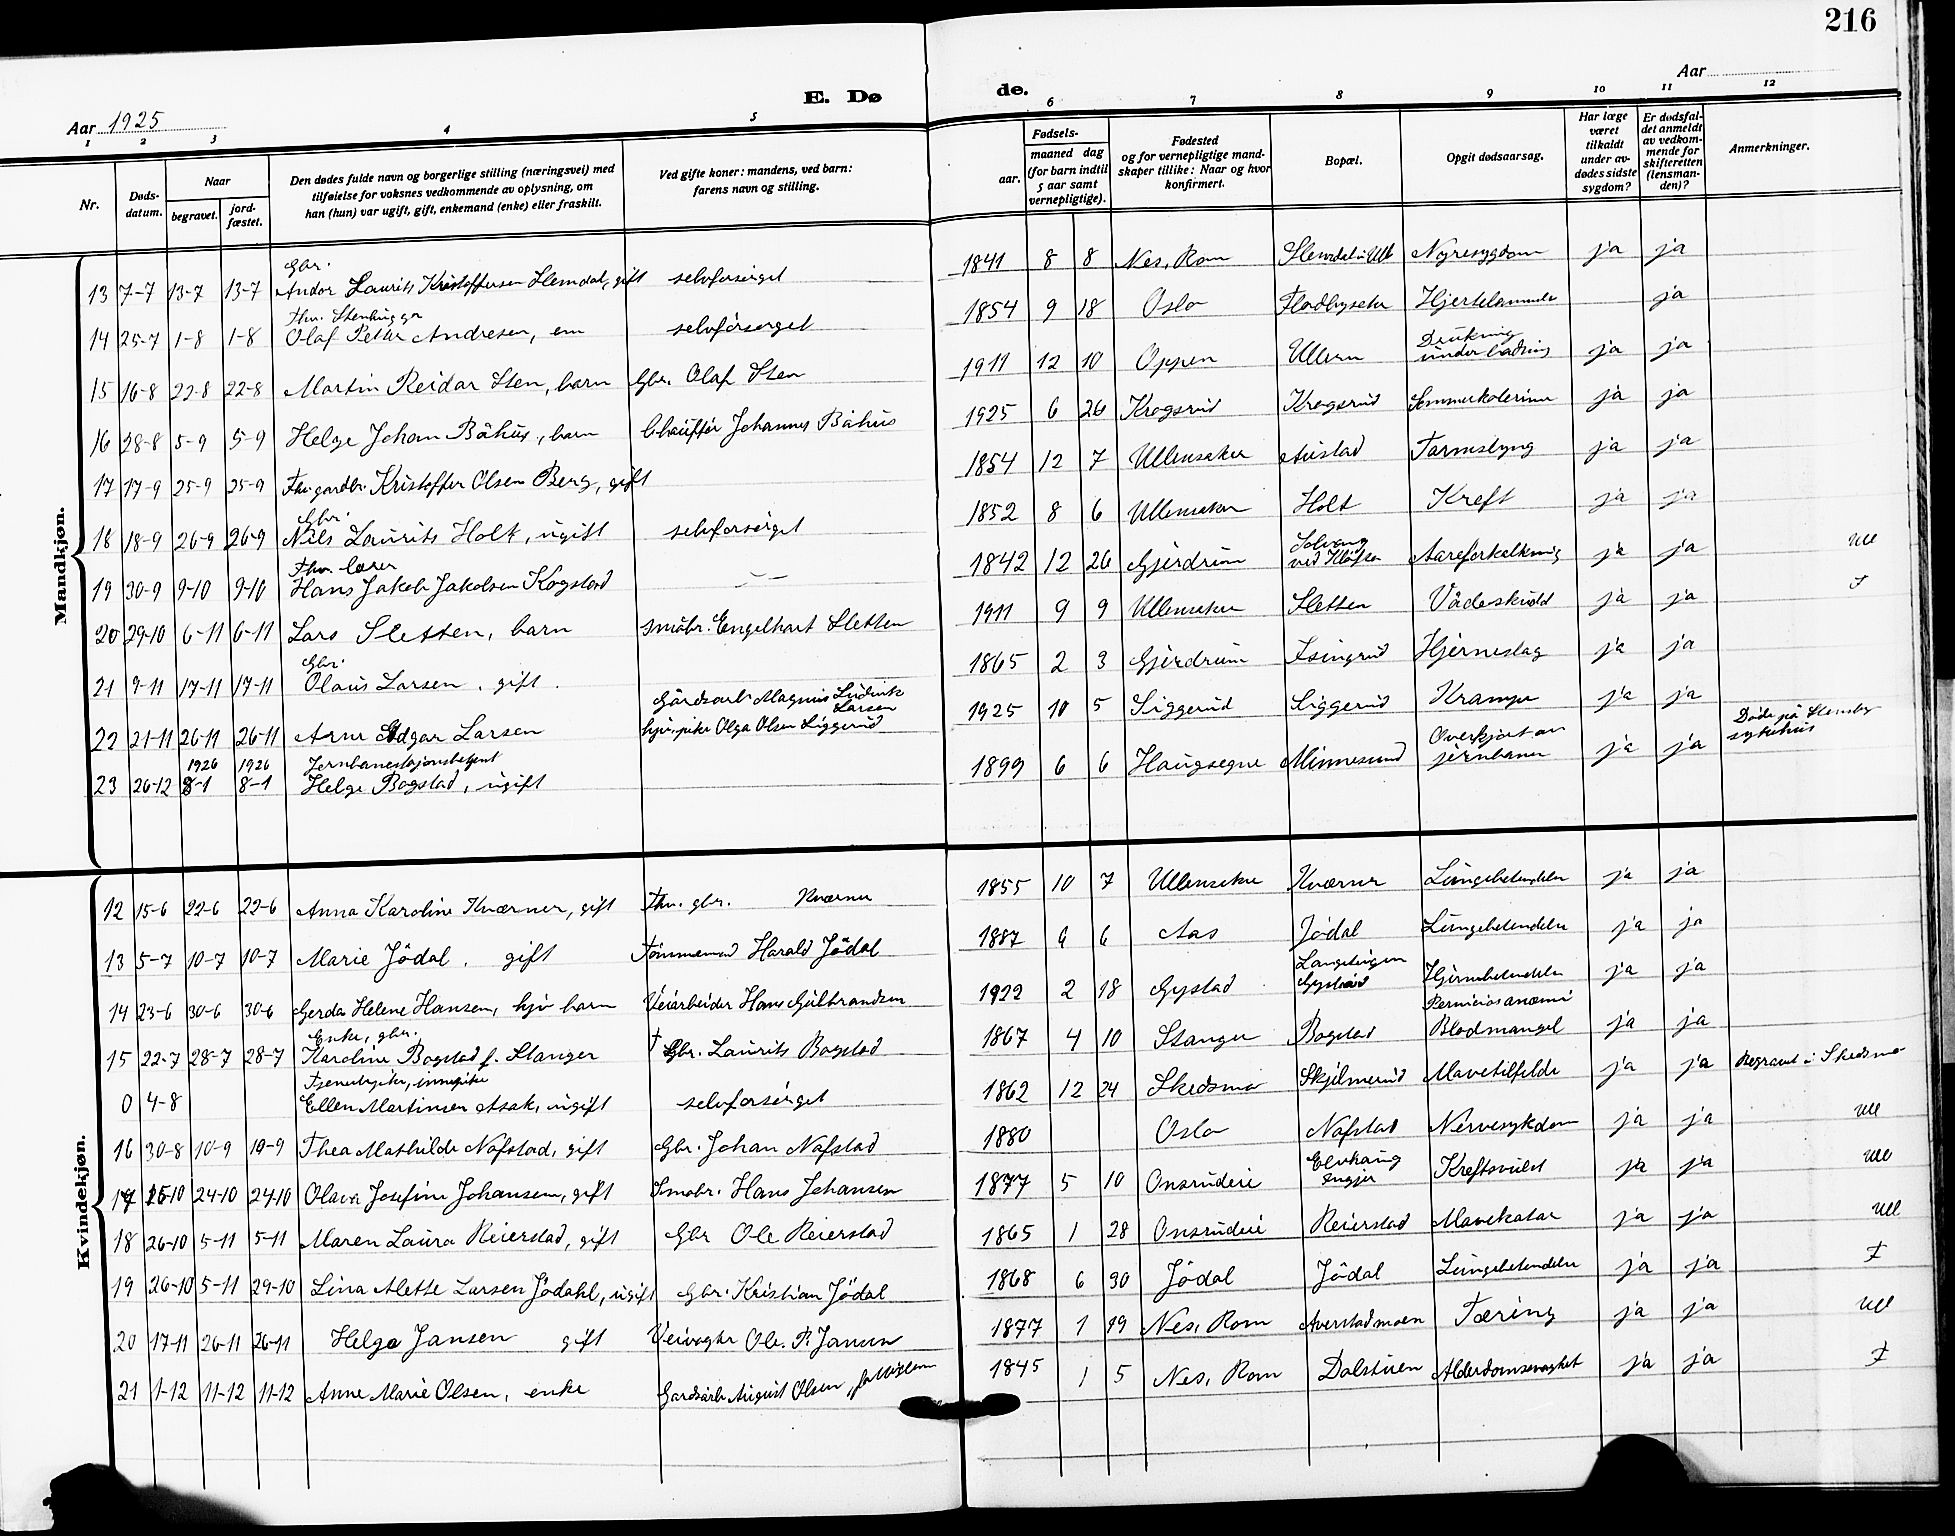 216
E. Dø de.
Aar 1925
Aar
1 2 3 4 5 6 7 8 9 10 11 12
Nr.
Døds-datum.
Naar
begravet.
jord-fæstet.
Den dødes fulde navn og borgerlige stilling (næringsvei) med tilføielse for voksnes vedkommende av oplysning, om han (hun) var ugift, gift, enkemand (enke) eller fraskilt.
Ved gifte koner: mandens, ved barn: farens navn og stilling.
Fødsels-
aar.
maaned dag (for barn indtil 5 aar samt vernepligtige).
Fødested og for vernepligtige mand-skaper tillike: Naar og hvor konfirmert.
Bopæl.
Opgit dødsaarsag.
Har læge været tilkaldt under av-dødes sidste sygdom?
Er dødsfal-det anmeldt av vedkom-mende for skifteretten (lensman-den)?
Anmerkninger.
Mandkjøn.
13 7-7 13-7 13-7 Gbr. Andor Laurits Kristoffersen Slemdal, gift selvforsørget 1841 8 8 Nes, Rom Slemdal i Ull Nyresygdom ja ja
14 25-7 1-8 1-8 Fhv. Stenhugger Olaf Petter Andresen, em selvforsørget 1854 9 18 Oslo Flodbyseter Hjertelammelse ja
15 16-8 22-8 22-8 Martin Reidar Sten, barn Gbr. Olaf Sten 1911 12 10 Oppen Ullern Drukning under badning ja ja
16 28-8 5-9 5-9 Helge Johan Båhus, barn Chauffør Johannes Båhus 1925 6 26 Krogsrud Krogsrud Sommerkolerine ja ja
17 17-9 25-9 25-9 Fhv. gardbr. Kristoffer Olsen Berg, gift 1854 12 7 Ullensaker Austad Tarmslyng ja ja
18 18-9 26-9 26-9 Gbr. Nils Laurits Holt, ugift selvforsørget 1852 8 6 Ullensaker Holt Kreft ja ja
19 30-9 9-10 9-10 Fhv. lærer Hans Jakob Jakobsen Kogstad 1842 12 26 Gjerdrum Solvang ved Kløften Aareforkalkning ja ja Ull
20 29-10 6-11 6-11 Lars Sletten, barn småbr. Engelhart Sletten 1911 9 9 Ullensaker Sletten Vådeskudd ja ja F
21 9-11 17-11 17-11 Gbr. Olaus Larsen, gift. 1865 2 3 Gjerdrum Isingrud Hjerneslag ja ja
22 21-11 26-11 26-11 Arne Edgar Larsen Gårdsarb. Magnus Ludvik Larsen hjv. pike Olga Olsen Siggerud 1925 10 5 Siggerud Siggerud Krampe ja ja
23 26-12 1926 8-1 1926 8-1 Jernbanestasjonsbetjent Helge Bogstad, ugift 1899 6 6 Haugsegne Minnesund Overkjørt av jernbanen ja ja Døde på Stensby sykehus
Kvindekjøn.
12 15-6 22-6 22-6 Anna Karoline Kværner, gift Fhv. gbr. Kværner 1855 10 7 Ullensaker Kværner Lungebetendelse ja ja
13 5-7 10-7 10-7 Marie Jødal. gift Tømmermand Harald Jødal 1887 6 6 Aas Jødal Lungebetendelse ja ja
14 23-6 30-6 30-6 Gerda Helene Hansen, hjv barn Veiarbeider Hans Gulbrandsen 1922 2 18 Gystad Gystad Hjernebetendelse ja ja
15 22-7 28-7 28-7 Enke, gbr. Karoline Bogstad f. Stanger † Gbr. Laurits Bogstad 1867 4 10 Stanger Bogstad Perniciøs anæmi Blodmangel ja ja
0 4-8 Tjenestepike, innepike Ellen Martinsen Asak, ugift selvforsørget 1862 12 24 Skedsmo Skjilmerud Mavetilfelde ja ja Begravet i Skedsmo
16 30-8 10-9 10-9 Thea Mathilde Nafstad, gift Gbr. Johan Nafstad 1880 Oslo Nafstad Nervesykdom ja ja Ull
17 15-10 24-10 24-10 Olava Josefine Johansen, gift Småbr. Hans Johansen 1877 5 10 Onsrudeie Elvhaug engjer Kreftsvulst ja ja Ull
18 26-10 5-11 5-11 Maren Laura Reierstad, gift Gbr Ole Reierstad 1865 1 28 Onsrudeie Reierstad Mavekatar ja ja Ull
19 26-10 5-11 29-10 Lina Alette Larsen Jødahl, ugift Gbr. Kristian Jødal 1868 6 30 Jødal Jødal Lungebetendelse ja ja F
20 17-11 26-11 26-11 Helga Jansen gift Veivogter Ole P. Jansen 1877 1 19 Nes, Rom Averstadmoen Tæring ja ja Ull
21 1-12 11-12 11-12 Anne Marie Olsen, enke Gardsarb August Olsen 1845 1 5 Nes, Rom Dalstuen Alderdomssvaghet ja ja F